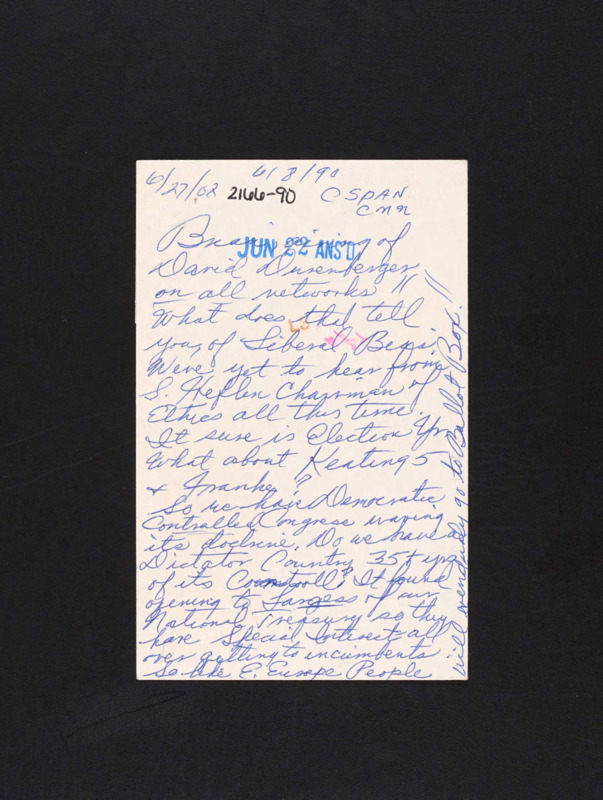 6/8/90
6/27/02 2166-90 C SPAN
CNN
JUN 22 ANS'D
of
David Durenberger
on all networks!!
What does this tell
you, of Liberal
We've yet to hear from
S. Heflin Chairman of
Ethics all this time.
It sure is Election Yr.
What about Keating 5
+ Franke?
So we have Democratic
Controlled Congress waving
its doctrine. Do we have
Dictator Country 35+ yrs
of its It found
opening to Largess of our
National Treasury so they
have Special Interest all
over getting to incumbents
So like E. Europe People
will go to Ballot Box!!